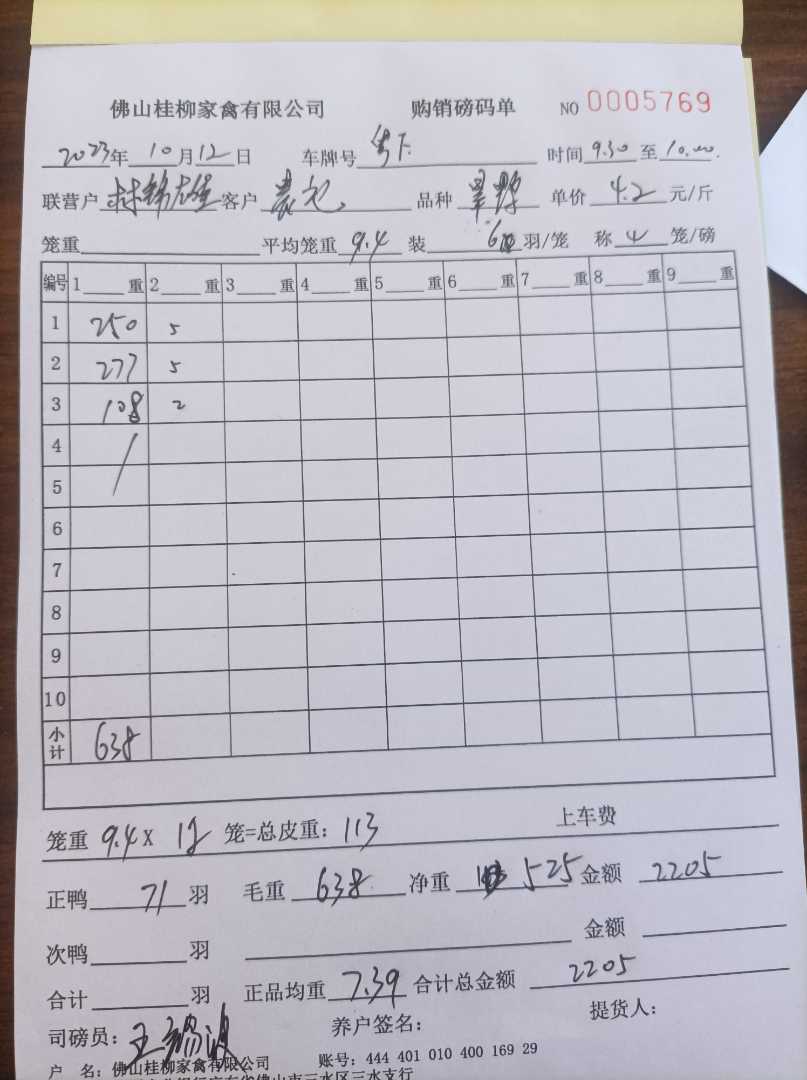 佛山桂柳家禽有限公司 购销磅码单 NO 0005769
2023年10月12日 车牌号 时间 9.30 至 10.00.
联营户 林锦 客户 品种 单价 4.2 元/斤
笼重 平均笼重 9.4 装 6 羽/笼 称 4 笼/磅
编号 1 重 2 重 3 重 4 重 5 重 6 重 7 重 8 重 9 重
1 250 5
2 277 5
3 108 2
4 /
5
6
7
8
9
10
小计 638
笼重 9.4 X 12 笼=总皮重: 113 上车费
正鸭 71 羽 毛重 638 净重 525 金额 2205
次鸭 羽 金额
合计 羽 正品均重 7.39 合计总金额 2205
司磅员: 王锡波 养户签名: 提货人:
户 名: 佛山桂柳家禽有限公司 账号: 444 401 010 400 169 29
佛山市三水区三水支行